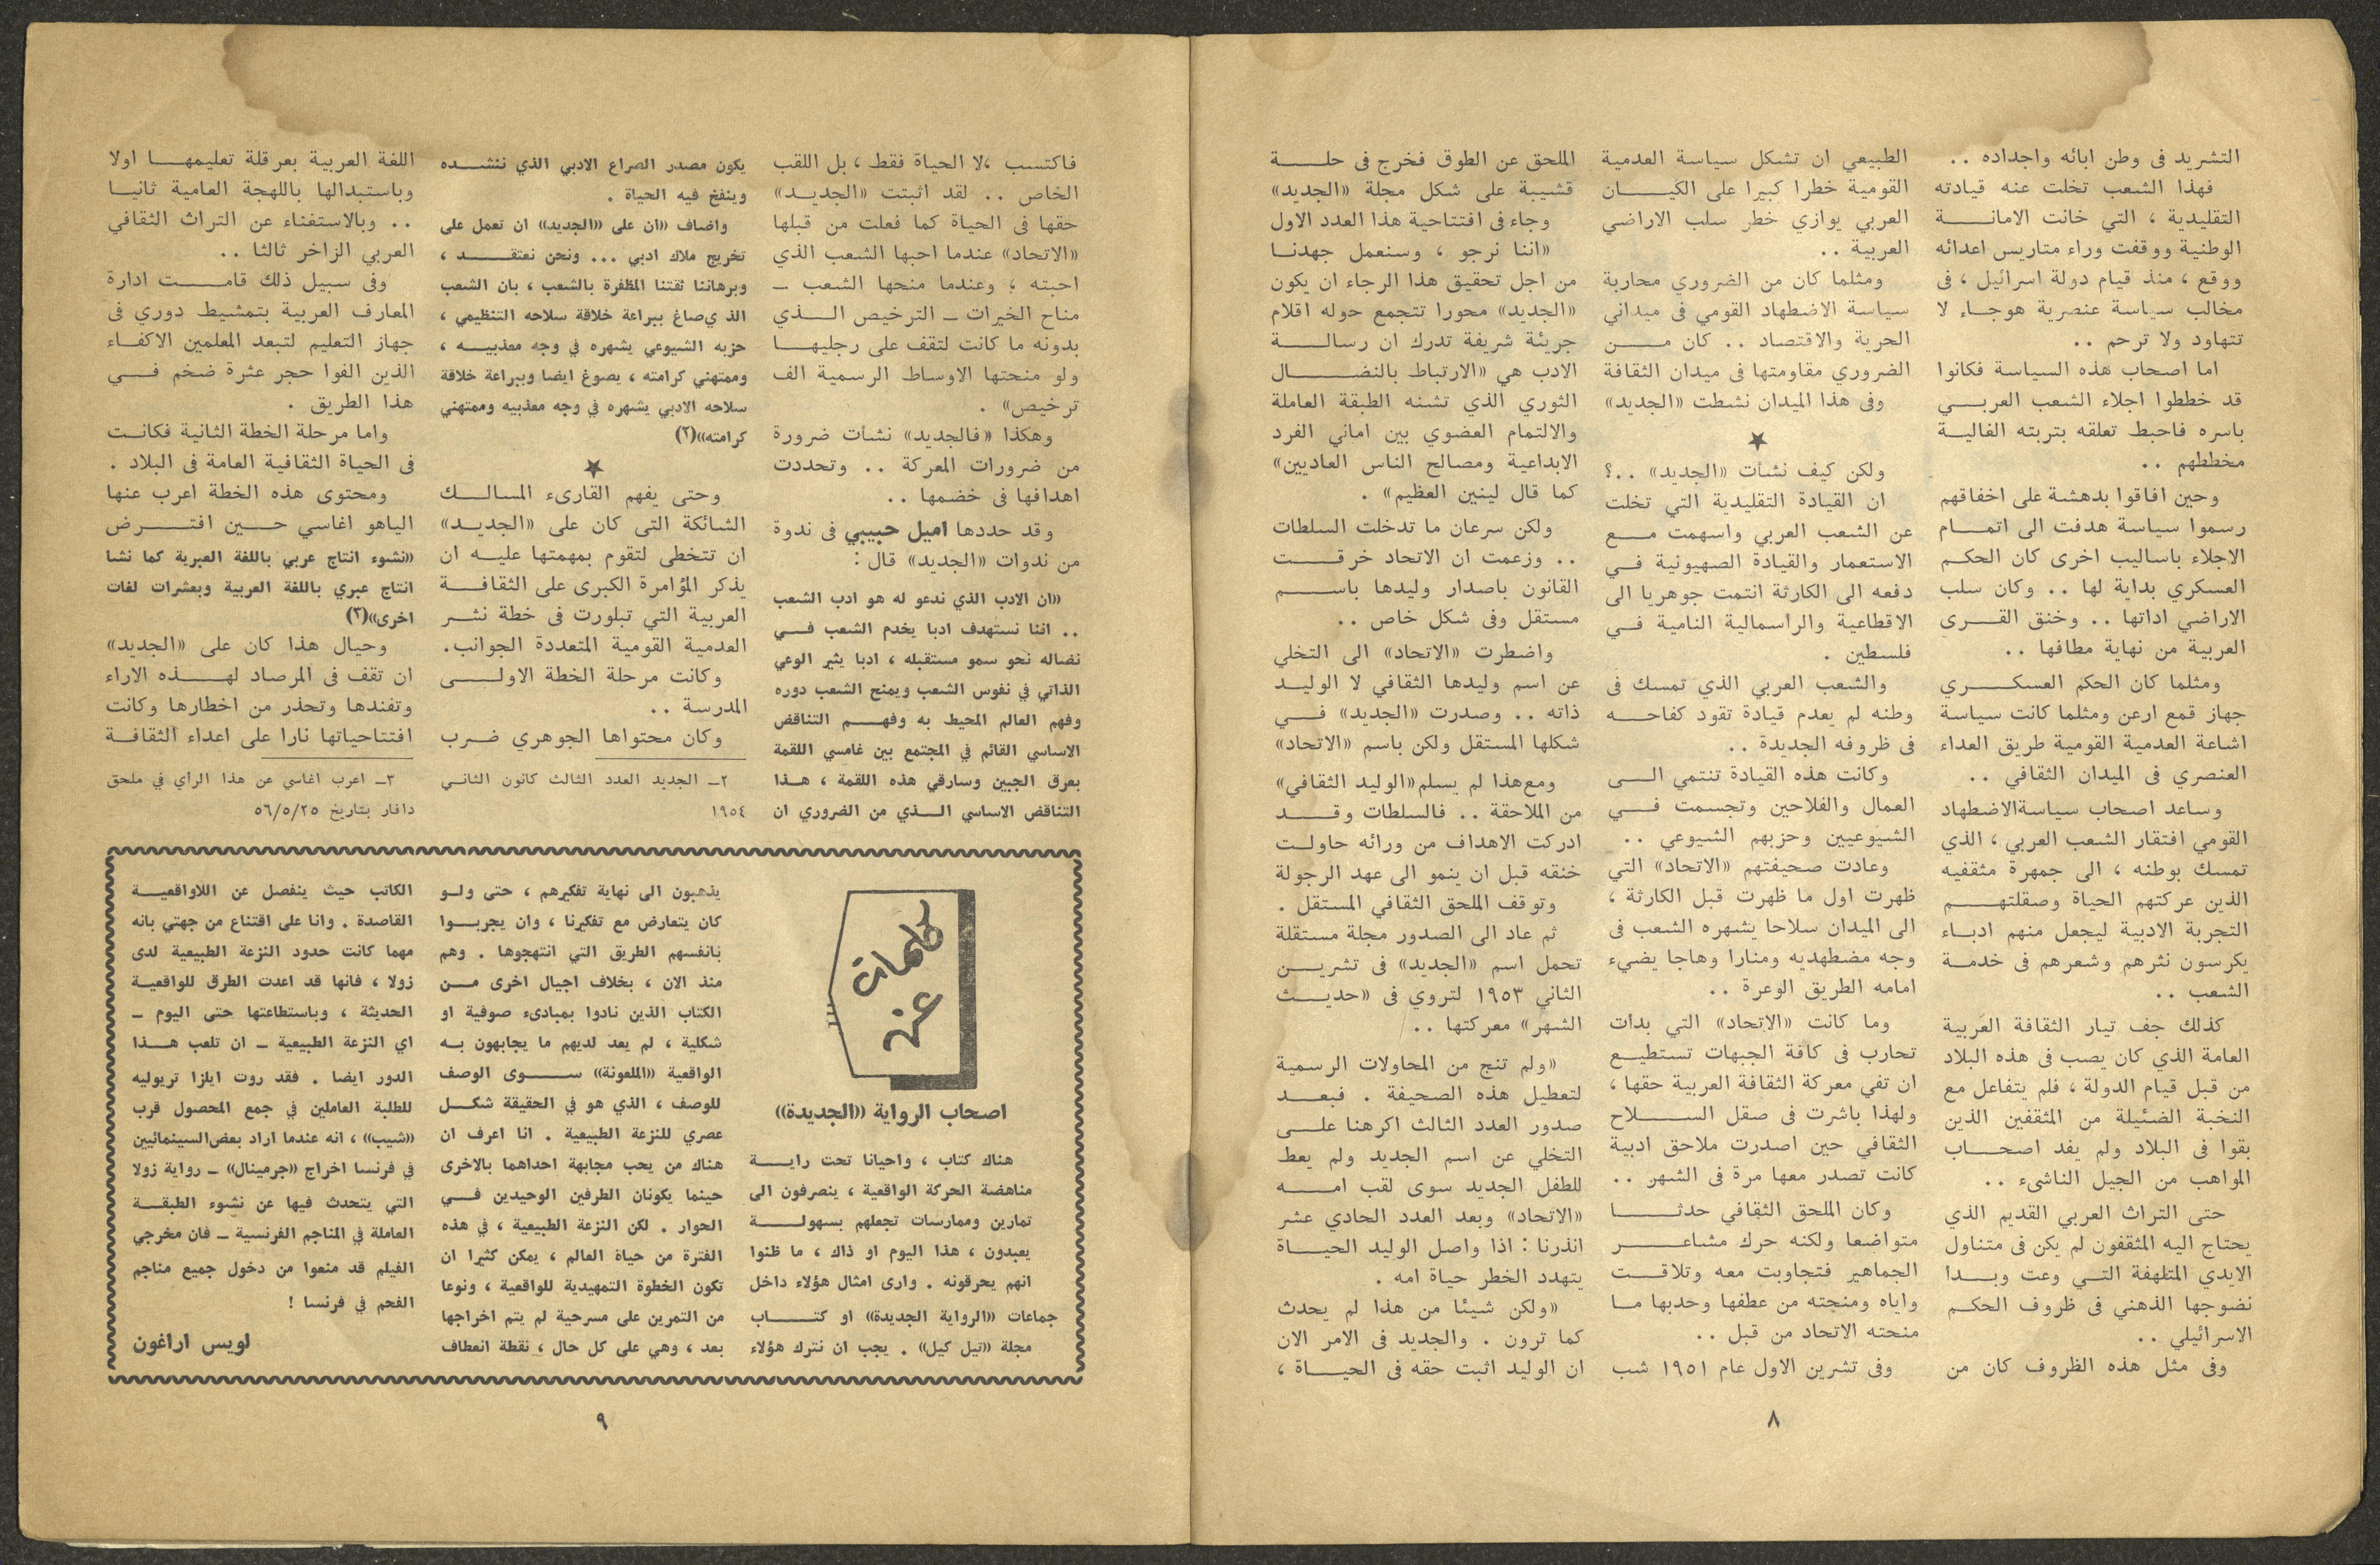 التشريد فى وطن ابائه واجداده ..
فهذا الشعب تخلت عنه قيادته
التقليدية ، التي خانت الامانة
الوطنية ووقفت وراء متاريس اعدائه
ووقع ، منذ قيام دولة اسرائيل ، فى
مخالب سياسة عنصرية هوجاء لا
تتهاود ولا ترحم ..
اما اصحاب هذه السياسة فكانوا
قد خططوا اجلاء الشعب العربي
باسره فاحبط تعلقه بتربته الغالية
مخططهم ..
وحين افاقوا بدهشة على اخفاقهم
رسموا سياسة هدفت الى اتمام
الاجلاء باساليب اخرى كان الحكم
العسكري بداية لها .. وكان سلب
الاراضي اداتها .. وخنق القرى
العربية من نهاية مطافها ..
ومثلما كان الحكم العسكري
جهاز قمع ارعن ومثلما كانت سياسة
اشاعة العدمية القومية طريق العداء
العنصري فى الميدان الثقافي ..
وساعد اصحاب سياسة الاضطهاد
القومي افتقار الشعب العربي ، الذي
تمسك بوطنه ، الى جمهرة مثقفيه
الذين عركتهم الحياة وصقلتهم
التجربة الادبية ليجعل منهم ادباء
يكرسون نثرهم وشعرهم فى خدمة
الشعب ..
كذلك جف تيار الثقافة العربية
العامة الذي كان يصب فى هذه البلاد
من قبل قيام الدولة ، فلم يتفاعل مع
النخبة الضئيلة من المثقفين الذين
بقوا فى البلاد ولم يفد اصحاب
المواهب من الجيل الناشىء ..
حتى التراث العربي القديم الذي
يحتاج اليه المثقفون لم يكن فى متناول
الايدي المتلهفة التي وعت وبدا
نضوجها الذهني فى ظروف الحكم
الاسرائيلي ..
وفى مثل هذه الظروف كان من
الطبيعي ان تشكل سياسة العدمية
القومية خطرا كبيرا على الكيان
العربي يوازي خطر سلب الاراضي
العربية ..
ومثلما كان من الضروري محاربة
سياسة الاضطهاد القومي فى ميداني
الحرية والاقتصاد .. كان من
الضروري مقاومتها فى ميدان الثقافة
وفى هذا الميدان نشطت «الجديد»
★
ولكن كيف نشأت «الجديد» ..؟
ان القيادة التقليدية التي تخلت
عن الشعب العربي واسهمت مع
الاستعمار والقيادة الصهيونية في
دفعه الى الكارثة انتمت جوهريا الى
الاقطاعية والرأسمالية النامية في
فلسطين .
والشعب العربي الذي تمسك فى
وطنه لم يعدم قيادة تقود كفاحه
فى ظروفه الجديدة ..
وكانت هذه القيادة تنتمي الى
العمال والفلاحين وتجسمت في
الشيوعيين وحزبهم الشيوعي ..
وعادت صحيفتهم «الاتحاد» التي
ظهرت اول ما ظهرت قبل الكارثة ،
الى الميدان سلاحا يشهره الشعب فى
وجه مضطهديه ومنارا وهاجا يضيء
امامه الطريق الوعرة ..
وما كانت «الاتحاد» التي بدأت
تحارب فى كافة الجبهات تستطيع
ان تفي معركة الثقافة العربية حقها ،
ولهذا باشرت فى صقل السلاح
الثقافي حين اصدرت ملاحق ادبية
كانت تصدر معها مرة فى الشهر ..
وكان الملحق الثقافي حدثا
متواضعا ولكنه حرك مشاعر
الجماهير فتجاوبت معه وتلاقت
واياه ومنحته من عطفها وحدبها ما
منحته الاتحاد من قبل ..
وفى تشرين الاول عام ١٩٥١ شب
الملحق عن الطوق فخرج فى حلة
قشيبة على شكل مجلة «الجديد»
وجاء فى افتتاحية هذا العدد الاول
«اننا نرجو ، وسنعمل جهدنا
من اجل تحقيق هذا الرجاء ان يكون
«الجديد» محورا تتجمع حوله اقلام
جريئة شريفة تدرك ان رسالة
الادب هي «الارتباط بالنضال
الثوري الذي تشنه الطبقة العاملة
والالتمام العضوي بين اماني الفرد
الابداعية ومصالح الناس العاديين»
كما قال لينين العظيم» .
ولكن سرعان ما تدخلت السلطات
.. وزعمت ان الاتحاد خرقت
القانون باصدار وليدها باسم
مستقل وفى شكل خاص ..
واضطرت «الاتحاد» الى التخلي
عن اسم وليدها الثقافي لا الوليد
ذاته .. وصدرت «الجديد» في
شكلها المستقل ولكن باسم «الاتحاد»
ومع هذا لم يسلم «الوليد الثقافي»
من الملاحقة .. فالسلطات وقد
ادركت الاهداف من ورائه حاولت
خنقه قبل ان ينمو الى عهد الرجولة
وتوقف الملحق الثقافي المستقل .
ثم عاد الى الصدور مجلة مستقلة
تحمل اسم «الجديد» فى تشرين
الثاني ١٩٥٣ لتروي فى «حديث
الشهر» معركتها ..
«ولم تنج من المحاولات الرسمية
لتعطيل هذه الصحيفة . فبعد
صدور العدد الثالث اكرهنا على
التخلي عن اسم الجديد ولم يعط
للطفل الجديد سوى لقب امه
«الاتحاد» وبعد العدد الحادي عشر
انذرنا : اذا واصل الوليد الحياة
يتهدد الخطر حياة امه .
«ولكن شيئا من هذا لم يحدث
كما ترون . والجديد فى الامر الان
ان الوليد اثبت حقه فى الحياة ،
٨
فاكتسب ، لا الحياة فقط ، بل اللقب
الخاص .. لقد اثبتت «الجديد»
حقها فى الحياة كما فعلت من قبلها
«الاتحاد» عندما احبها الشعب الذي
احبته ؛ وعندما منحها الشعب ـ
مناح الخيرات ـ الترخيص الذي
بدونه ما كانت لتقف على رجليها
ولو منحتها الاوساط الرسمية الف
ترخيص» .
وهكذا «فالجديد» نشأت ضرورة
من ضرورات المعركة .. وتحددت
اهدافها فى خضمها ..
وقد حددها اميل حبيبي فى ندوة
من ندوات «الجديد» قال :
«ان الادب الذي ندعو له هو ادب الشعب
.. اننا نستهدف ادبا يخدم الشعب في
نضاله نحو سمو مستقبله ، ادبا يثير الوعي
الذاتي في نفوس الشعب ويمنح الشعب دوره
وفهم العالم المحيط به وفهم التناقض
الاساسي القائم في المجتمع بين غامسي اللقمة
بعرق الجبين وسارقي هذه اللقمة ، هذا
التناقض الاساسي الذي من الضروري ان
يكون مصدر الصراع الادبي الذي ننشده
وينفخ فيه الحياة .
واضاف «ان على «الجديد» ان تعمل على
تخريج ملاك ادبي ... ونحن نعتقد ،
وبرهاننا ثقتنا المظفرة بالشعب ، بان الشعب
الذ ي صاغ ببراعة خلاقة سلاحه التنظيمي ،
حزبه الشيوعي يشهره في وجه معذبيه ،
وممتهني كرامته ، يصوغ ايضا وببراعة خلاقة
سلاحه الادبي يشهره في وجه معذبيه وممتهني
كرامته»(٢)
★
وحتى يفهم القارىء المسالك
الشائكة التى كان على «الجديد»
ان تتخطى لتقوم بمهمتها عليه ان
يذكر المؤامرة الكبرى على الثقافة
العربية التي تبلورت فى خطة نشر
العدمية القومية المتعددة الجوانب.
وكانت مرحلة الخطة الاولى
المدرسة ..
وكان محتواها الجوهري ضرب
٢ـ الجديد العدد الثالث كانون الثاني
١٩٥٤
اللغة العربية بعرقلة تعليمها اولا
وباستبدالها باللهجة العامية ثانيا
.. وبالاستغناء عن التراث الثقافي
العربي الزاخر ثالثا ..
وفى سبيل ذلك قامت ادارة
المعارف العربية بتمشيط دوري فى
جهاز التعليم لتبعد المعلمين الاكفاء
الذين الفوا حجر عثرة ضخم في
هذا الطريق .
واما مرحلة الخطة الثانية فكانت
فى الحياة الثقافية العامة فى البلاد .
ومحتوى هذه الخطة اعرب عنها
الياهو اغاسي حين افترض
«نشوء انتاج عربي باللغة العبرية كما نشا
انتاج عبري باللغة العربية وبعشرات لغات
اخرى»(٣)
وحيال هذا كان على «الجديد»
ان تقف فى المرصاد لهذه الاراء
وتفندها وتحذر من اخطارها وكانت
افتتاحياتها نارا على اعداء الثقافة
٣ـ اعرب اغاسي عن هذا الرأي في ملحق
دافار بتاريخ ٥٦/٥/٢٥
كلمات
عنه
اصحاب الرواية «الجديدة»
هناك كتاب ، واحيانا تحت راية
مناهضة الحركة الواقعية ، ينصرفون الى
تمارين وممارسات تجعلهم بسهولة
يعبدون ، هذا اليوم او ذاك ، ما ظنوا
انهم يحرقونه . وارى امثال هؤلاء داخل
جماعات «الرواية الجديدة» او كتاب
مجلة «تيل كيل» . يجب ان نترك هؤلاء
يذهبون الى نهاية تفكيرهم ، حتى ولو
كان يتعارض مع تفكيرنا ، وان يجربوا
بانفسهم الطريق التي انتهجوها . وهم
منذ الان ، بخلاف اجيال اخرى من
الكتاب الذين نادوا بمبادىء صوفية او
شكلية ، لم يعد لديهم ما يجابهون به
الواقعية «الملعونة» سوى الوصف
للوصف ، الذي هو في الحقيقة شكل
عصري للنزعة الطبيعية . انا اعرف ان
هناك من يحب مجابهة احداهما بالاخرى
حينما يكونان الطرفين الوحيدين في
الحوار . لكن النزعة الطبيعية ، في هذه
الفترة من حياة العالم ، يمكن كثيرا ان
تكون الخطوة التمهيدية للواقعية ، ونوعا
من التمرين على مسرحية لم يتم اخراجها
بعد ، وهي على كل حال ، نقطة انعطاف
الكاتب حيث ينفصل عن اللاواقعية
القاصدة . وانا على اقتناع من جهتي بانه
مهما كانت حدود النزعة الطبيعية لدى
زولا ، فانها قد اعدت الطرق للواقعية
الحديثة ، وباستطاعتها حتى اليوم ـ
اي النزعة الطبيعية ـ ان تلعب هذا
الدور ايضا . فقد روت ايلزا تريوليه
للطلبة العاملين في جمع المحصول قرب
«شيب» ، انه عندما اراد بعض السينمائيين
في فرنسا اخراج «جرمينال» ـ رواية زولا
التي يتحدث فيها عن نشوء الطبقة
العاملة في المناجم الفرنسية ـ فان مخرجي
الفيلم قد منعوا من دخول جميع مناجم
الفحم في فرنسا !
لويس اراغون
٩